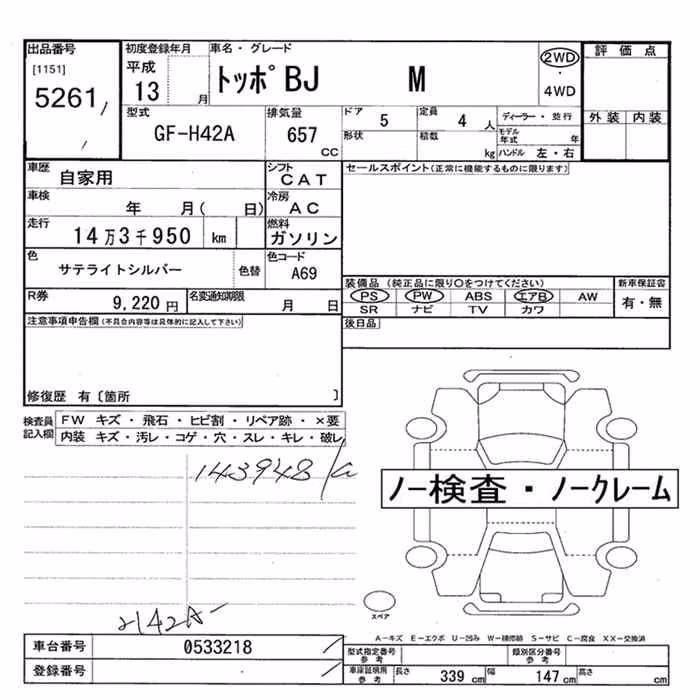 出品番号
[1151]
5261
初度登録年月
平成
13 月
車名・グレード
トッポBJ M
2WD
・
4WD
評価点
外装 内装
型式
GF-H42A
排気量
657
cc
ドア 5
定員 4 人
ディーラー・並行
形状
積載 kg
モデル年式 年
ハンドル 左・右
車歴
自家用
シフト
CAT
セールスポイント(正常に機能するものに限ります)
車検
年 月( 日)
冷房
AC
走行
14万3千950 km
燃料
ガソリン
色
サテライトシルバー 色替
色コード
A69
装備品 (純正品に限り○をつけてください)
新車保証書
PS PW ABS エアB AW
有・無
SR ナビ TV カワ
R券
9,220 円
名変通知期限
月 日
後日品
注意事項申告欄(不具合内容等は具体的に記入して下さい)
修復歴 有〔箇所 〕
検査員記入欄
FW キズ・飛石・ヒビ割・リペア跡・×要
内装 キズ・汚レ・コゲ・穴・スレ・キレ・破レ
143948
ノー検査・ノークレーム
スペア
H42A-
A-キズ E-エクボ U-凹み W-補修跡 S-サビ C-腐食 XX-交換済
車台番号
0533218
登録番号
型式指定番号
参考
類別区分番号
参考
車庫証明用
参考
長さ 339 cm
幅 147 cm
高さ cm